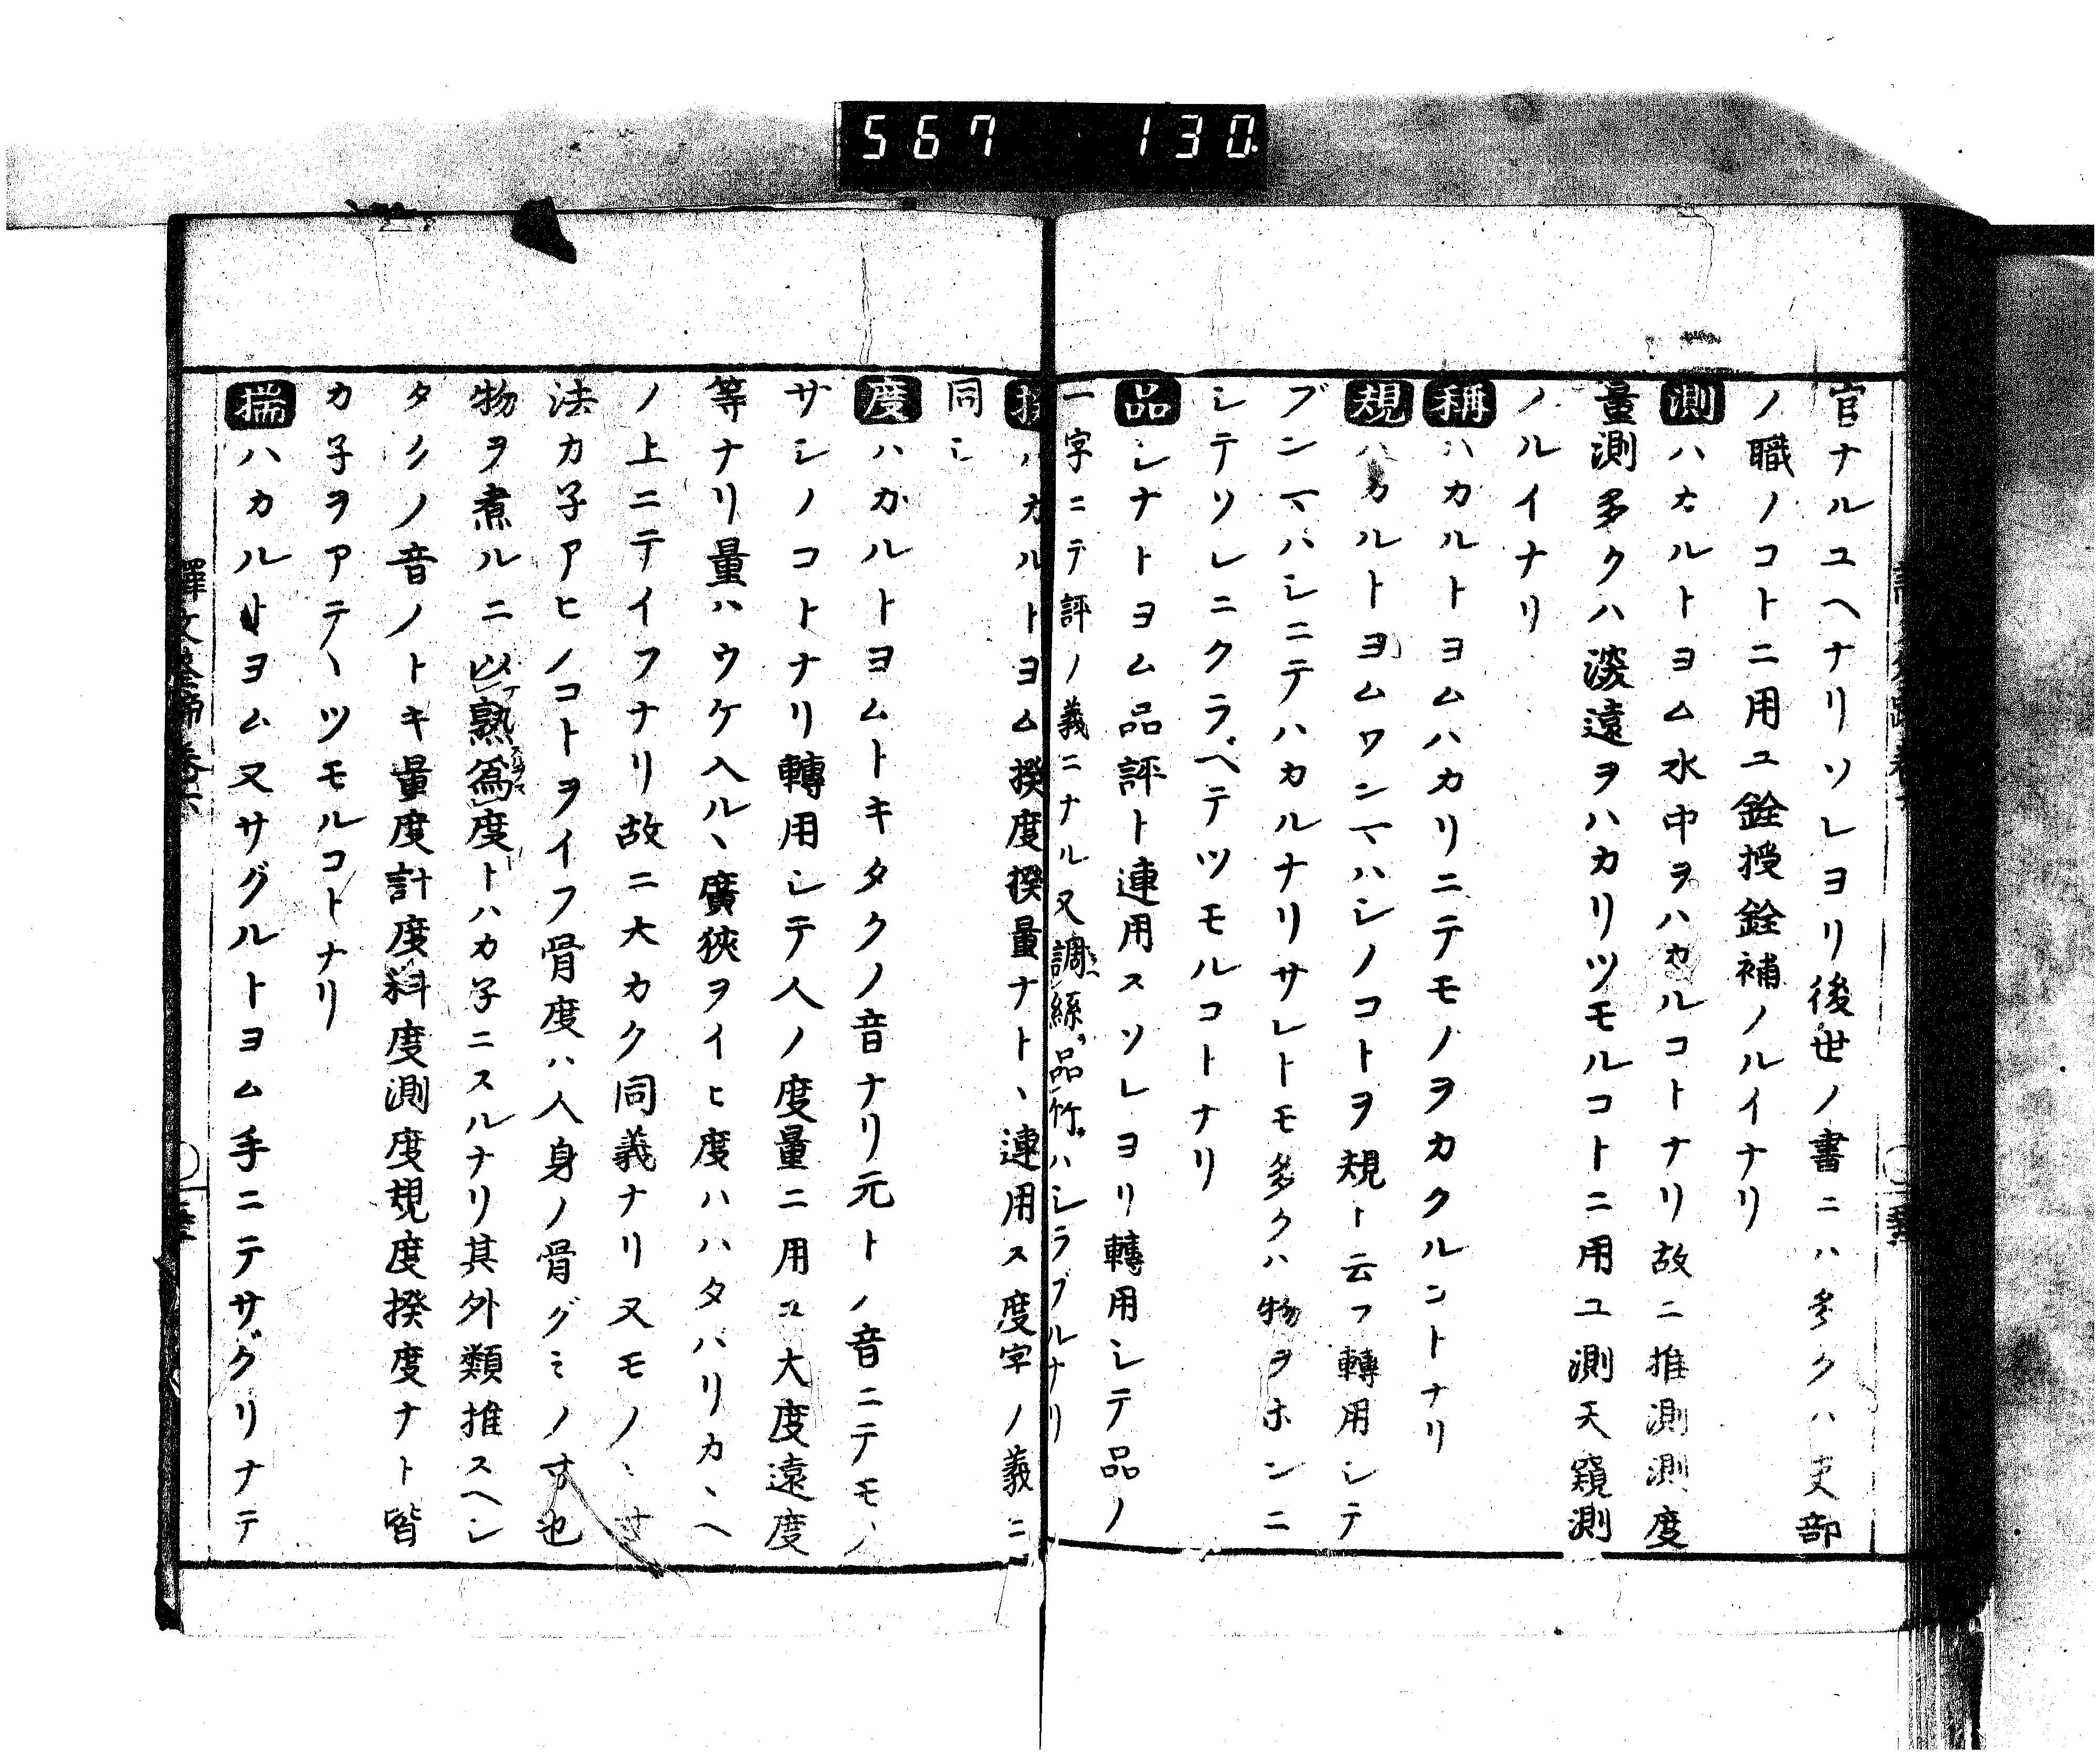 567 130
官ナルユヘナリソレヨリ後世ノ書ニハ多クハ吏部
ノ職ノコトニ用ユ銓授銓補ノルイナリ
測ハカルトヨム水中ヲハカルコトナリ故ニ推測測度
量測多クハ深遠ヲハカリツモルコトニ用ユ測天窺測
ノルイナリ
稱ハカルトヨムハカリニテモノヲカクルコトナリ
規ハカルトヨムワンマハシノコトヲ規ト云フ轉用シテ
ブンマハシニテハカルナリサレトモ多クハ物ヲホンニ
シテソレニクラベテツモルコトナリ
品シナトヨム品評ト連用スソレヨリ轉用シテ品ノ
一字ニテ評ノ義ニナル又調絲品竹ハシラブルナリ
揆ハカルトヨム揆度揆量ナト丶連用ス度字ノ義ニ
同シ
度ハカルトヨムトキタクノ音ナリ元トノ音ニテモノ
サシノコトナリ轉用シテ人ノ度量ニ用ユ大度遠度
等ナリ量ハウケ入ル丶廣狹ヲイヒ度ハハタハリカ丶ヘ
ノ上ニテイフナリ故ニ大カク同義ナリ又モノ丶寸
法カ子アヒノコトヲイフ骨度ハ人身ノ骨グミノ寸也
物ヲ煮ルニ以熟爲度トハカ子ニスルナリ其外類推スヘシ
タクノ音ノトキ量度計度料度測度規度揆度ナト皆
カ子ヲアテ丶ツモルコトナリ
揣ハカルトヨム又サグルトヨム手ニテサグリナテ